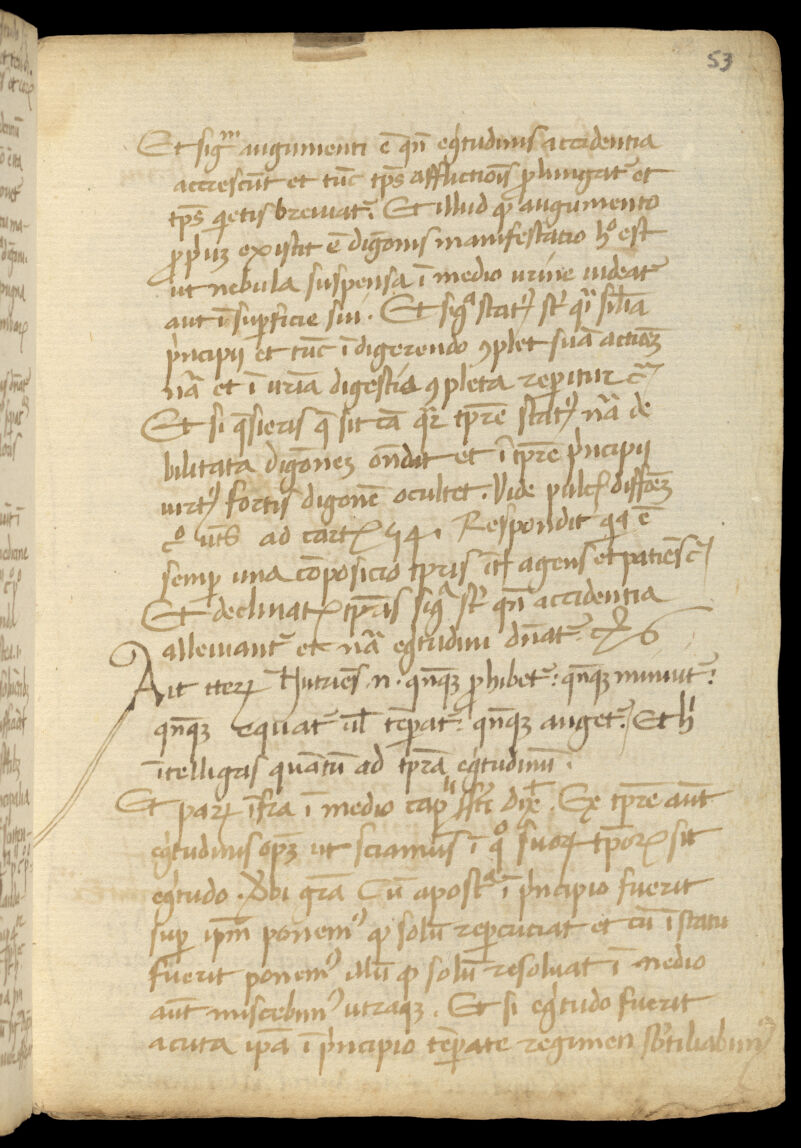 53
Et sigᵐ augumenti ē qn̄ egͥtudinis accidentia
accrescūt et tūc tp̄s afflictiōis ꝓlungat᷑ et
tp̄s qͥetis breuiat᷑. Et illud qͩ augumento
ꝓpͥuꝫ existit ē digōnis manifestatio hº est
ut nebula suspensa ī medio urine uideat᷑
aut ī suꝑficie sui. Et sigᵃ statꝰ st̄ qͣ sīlia
pͥncipij et tūc ī digerendo ꝯplet suā actiōꝫ
nā et ī uriā digestio ꝯpleta reperitur
Et si q̄sieris q̄ sit cā qr̄ tp̄re statꝰ nā de
bilitata digōneꝫ on̄dit et ī tp̄re pͥncipij
uirtꝰ fortis digōnē ocultet. Vide pulcͬ diff̄oꝫ
ad cart 54. Respondit qͩ ē
semꝑ una cōposicio tp̄ris agens et patiēs
Et declinatꝭ tp̄ris sigᵃ st̄ qn̄ accidentia
alleuiant᷑ et nā egͥtudini dn̄at᷑.
Ait iteꝝ Hutriēs .n. qn̄qꝫ ꝓhibet᷑: qn̄qꝫ minuit᷑:
qn̄qꝫ equat᷑ ul̄ tēꝑat᷑: qn̄qꝫ auget᷑. Et hͥ
ītelligas quātū ad tp̄ra egͥtudinū.
Et paꝝ īfra ī medio cap dix̄. Ex tp̄re aūt
egͥtudinis opꝫ ut sciamus ī qº suoꝝ tp̄oꝝ sit
egͥtudo. Vbi grā Cū apostᵃ ī pͥncipio fuerit
suꝑ ip̄m ponemꝰ qͩ solū reꝑcuciat et cū ī statu
fuerit ponemꝰ illū qͩ solū resoluat ī medio
aūt miscebimꝰ utraqꝫ. Et si egͥtudo fuerit
acuta ip̄a ī pͥncipio tēꝑate regimen sb̄tiliabimꝰ